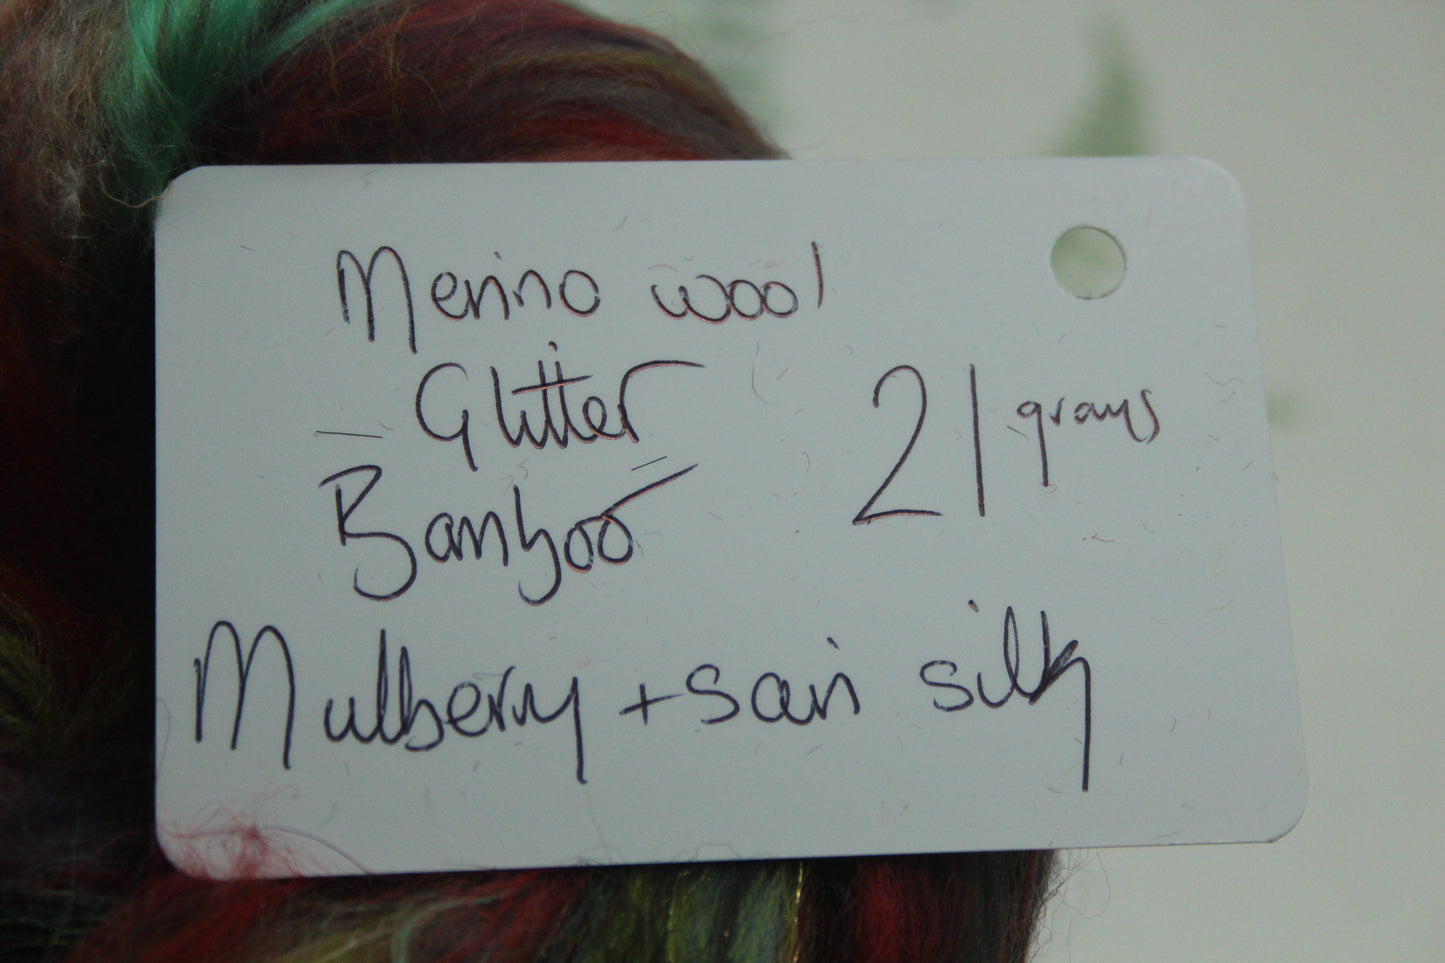 Merino wool
Glitter
21 grams
Bamboo
Mulberry + sari silk